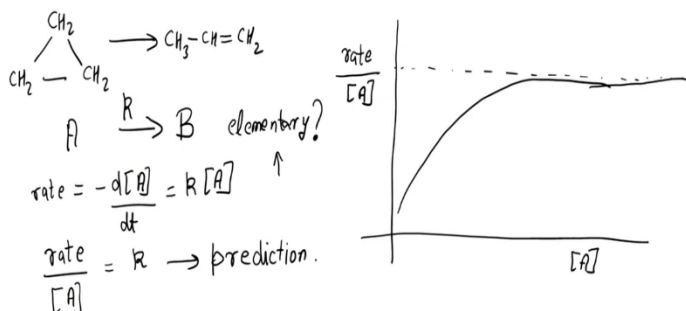 CH₂
CH₂ — CH₂ → CH₃-CH=CH₂
A →k B elementary?
rate = -d[A]/dt = k[A]
rate/[A] = k → prediction.
rate/[A]
[A]